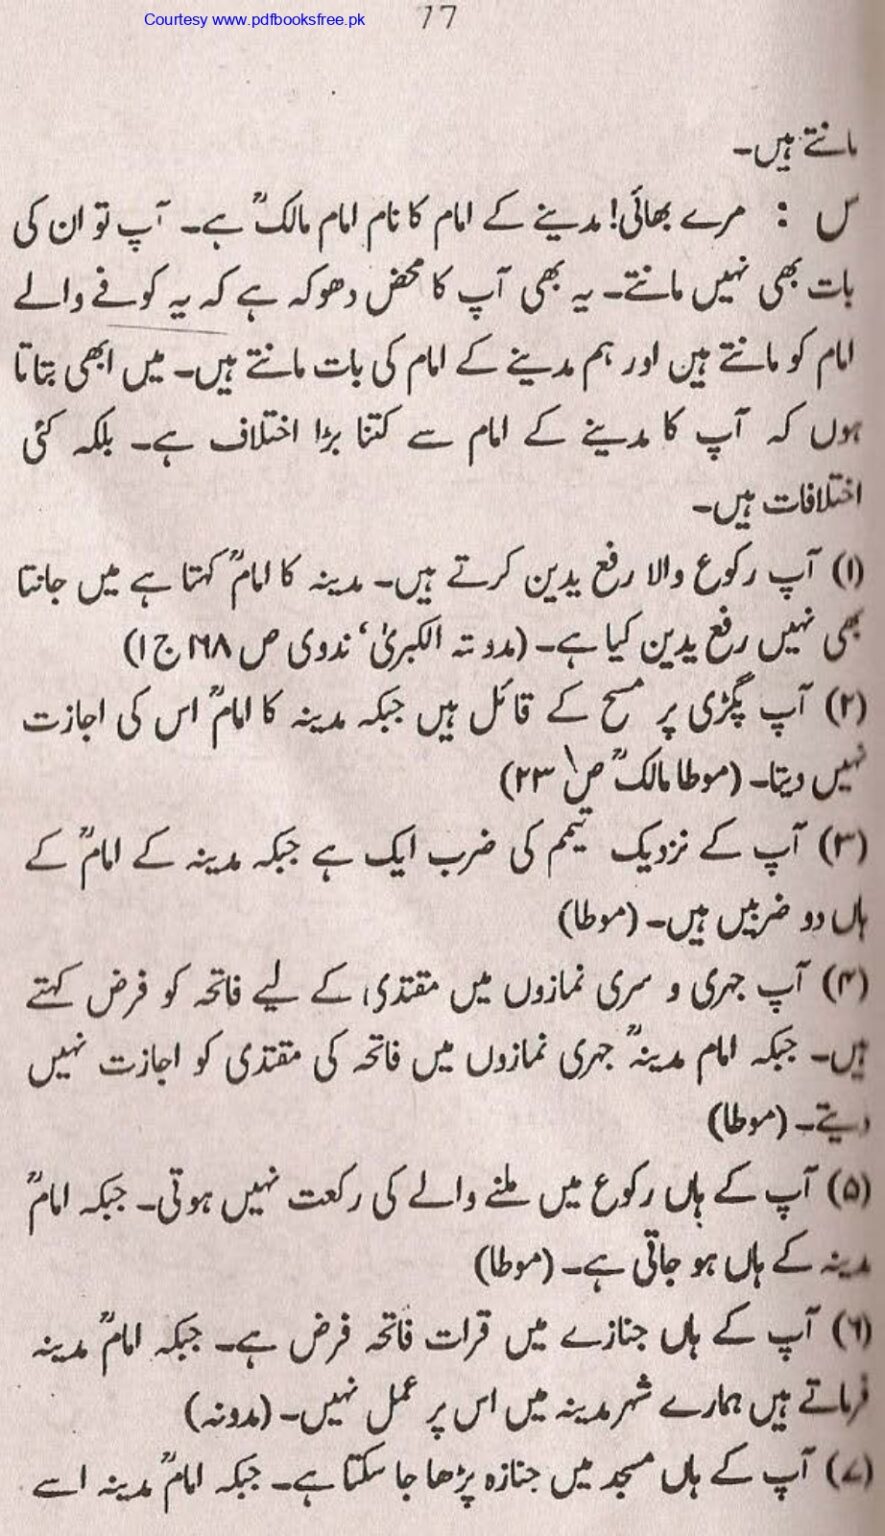 Courtesy www.pdfbooksfree.pk
77
مانتے ہیں۔
س : مرے بھائی! مدینے کے امام کا نام امام مالکؒ ہے۔ آپ تو ان کی
بات بھی نہیں مانتے۔ یہ بھی آپ کا محض دھوکہ ہے کہ یہ کوفے والے
امام کو مانتے ہیں اور ہم مدینے کے امام کی بات مانتے ہیں۔ میں ابھی بتاتا
ہوں کہ آپ کا مدینے کے امام سے کتنا بڑا اختلاف ہے۔ بلکہ کئی
اختلافات ہیں۔
(۱) آپ رکوع والا رفع یدین کرتے ہیں۔ مدینہ کا امامؒ کہتا ہے میں جانتا
بھی نہیں رفع یدین کیا ہے۔ (مدونتہ الکبریٰ‘ ندوی ص ۱۶۸ ج ۱)
(۲) آپ پگڑی پر مسح کے قائل ہیں جبکہ مدینہ کا امامؒ اس کی اجازت
نہیں دیتا۔ (موطا مالکؒ ص ۲۳)
(۳) آپ کے نزدیک تیمم کی ضرب ایک ہے جبکہ مدینہ کے امامؒ کے
ہاں دو ضربیں ہیں۔ (موطا)
(۴) آپ جہری و سری نمازوں میں مقتدی کے لیے فاتحہ کو فرض کہتے
ہیں۔ جبکہ امام مدینہؒ جہری نمازوں میں فاتحہ کی مقتدی کو اجازت نہیں
دیتے۔ (موطا)
(۵) آپ کے ہاں رکوع میں ملنے والے کی رکعت نہیں ہوتی۔ جبکہ امامؒ
مدینہ کے ہاں ہو جاتی ہے۔ (موطا)
(۶) آپ کے ہاں جنازے میں قرات فاتحہ فرض ہے۔ جبکہ امامؒ مدینہ
فرماتے ہیں ہمارے شہر مدینہ میں اس پر عمل نہیں۔ (مدونہ)
(۷) آپ کے ہاں مسجد میں جنازہ پڑھا جا سکتا ہے۔ جبکہ امامؒ مدینہ اسے